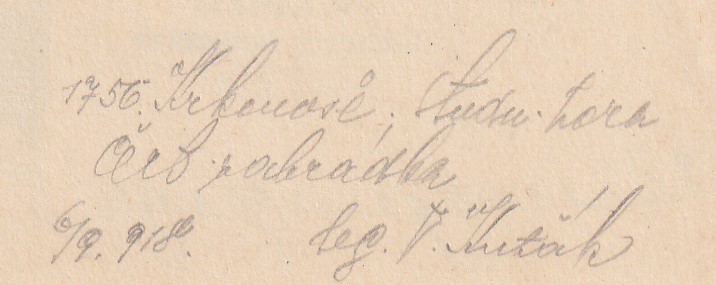 1756. Krkonoše, Studn. hora
Čert. zahrádka
6/9. 918. leg. V. Kuťák